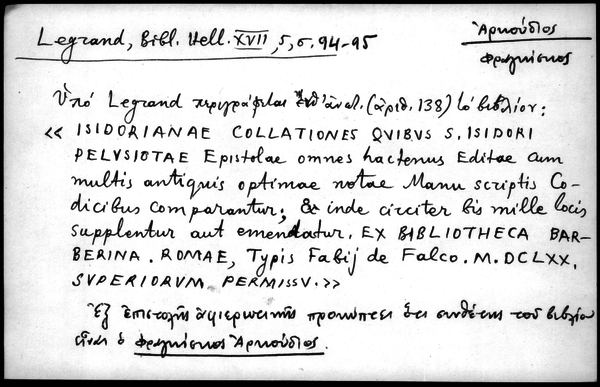 Legrand, Bibl. Hell. XVII, 5, σ. 94-95
Ἀρκούδιος
Φραγκίσκος
Ὑπό Legrand περιγράφεται (ἀριθ. 138) τό βιβλίον:
« ISIDORIANAE COLLATIONES QVIBVS S. ISIDORI
PELVSIOTAE Epistolae omnes hactenus Editae cum
multis antiquis optimae notae Manu scriptis Co-
dicibus comparantur; & inde circiter bis mille locis
supplentur aut emendatur. EX BIBLIOTHECA BAR-
BERINA. ROMAE, Typis Fabij de Falco. M.DCLXX.
SVPERIORVM PERMISSV.»
Ἐξ ἐπιστολῆς ἀφιερωτικῆς προκύπτει ὅτι συνθέτης τοῦ βιβλίου
εἶναι ὁ Φραγκίσκος Ἀρκούδιος.